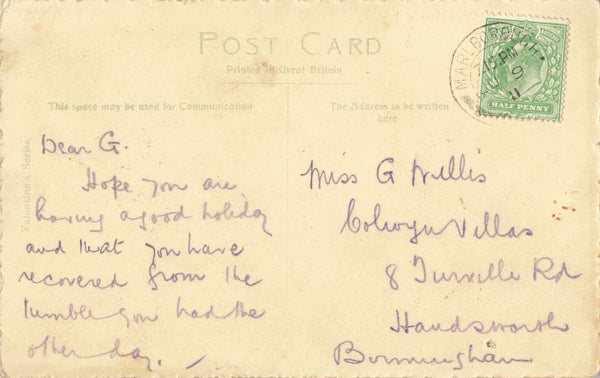 POST CARD
Printed in Great Britain
This space may be used for Communication
The Address to be written
here
Valentine's Series
MARLBOROUGH
15 PM
9
11
HALF PENNY
Dear G.
Hope you are
having a good holiday
and that you have
recovered from the
tumble you had the
other day.
Miss G Willis
Colwyn Villas
8 Turville Rd
Handsworth
Birmingham